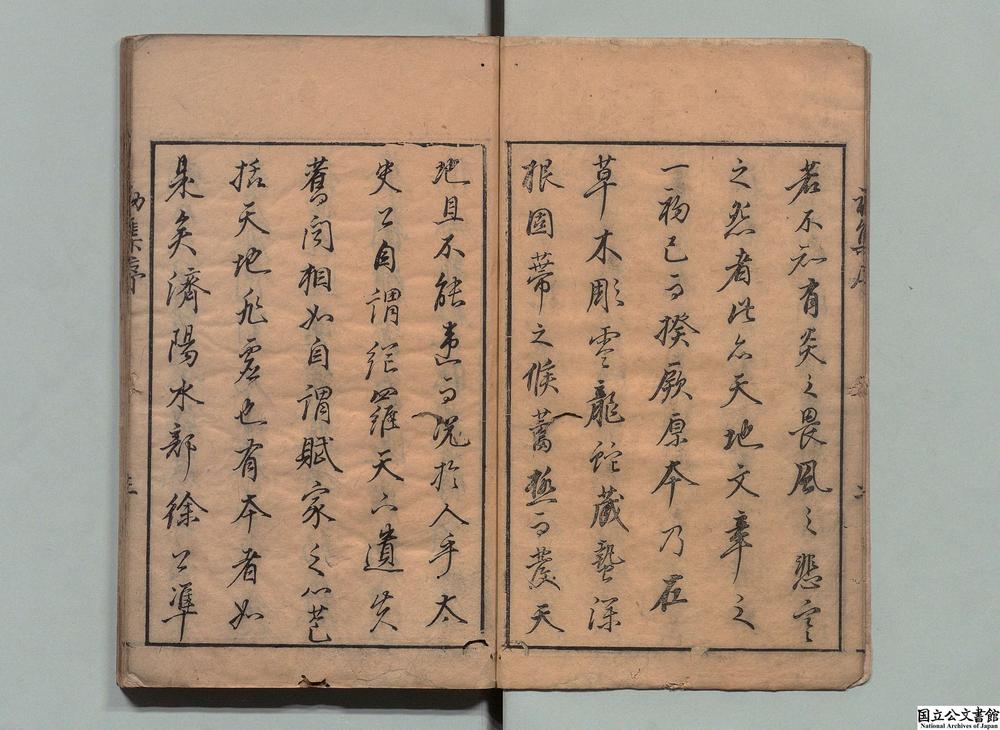 若不知有炎之畏風之悲寒
之怨者此亦天地文章之
一初已而揆厥原本乃在
草木彫零龍蛇藏蟄深
根固蒂之候蓄極而發天
地且不能違而况於人乎太
史公自謂網羅天下遺失
舊聞相如自謂賦家之心苞
括天地非虛也有本者如
是矣濟陽水部徐公準
初集序
三
国立公文書館
National Archives of Japan